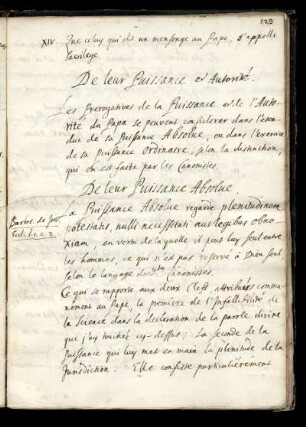 123
XIV. Que celuy qui dit un mensonge au Pape, s'appelle
sacrilege
De leur Puissance et Autorité.
Les Prerogatives de la Puissance et de l'Auto-
rité du Pape se peuvent considerer dans l'éten-
due de sa Puissance Absolue, ou dans l'exercice
de sa Puissance Ordinaire, selon la distinction,
qui en est faite par les Canonistes.
De leur Puissance Absolue
La Puissance Absolue regarde plenitudinem
potestatis, nulli necessitati aut legibus obno-
xiam, en vertu de laquelle il peut luy seul entre
les hommes, ce qui n'est pas reservé à Dieu seul
selon le langage des Canonistes.
Ce qui se rapporte aux deux Clefs, attribuées commu-
nement au Pape la premiere de l'Infallibilité de
la Science dans la declaration de la parole divine
que j'ay touchée cy-dessus; La seconde de la
Puissance qui luy met en main la plenitude de la
Jurisdiction. Elle consiste particulierement
Bartos. de
lib. 1. c. 2